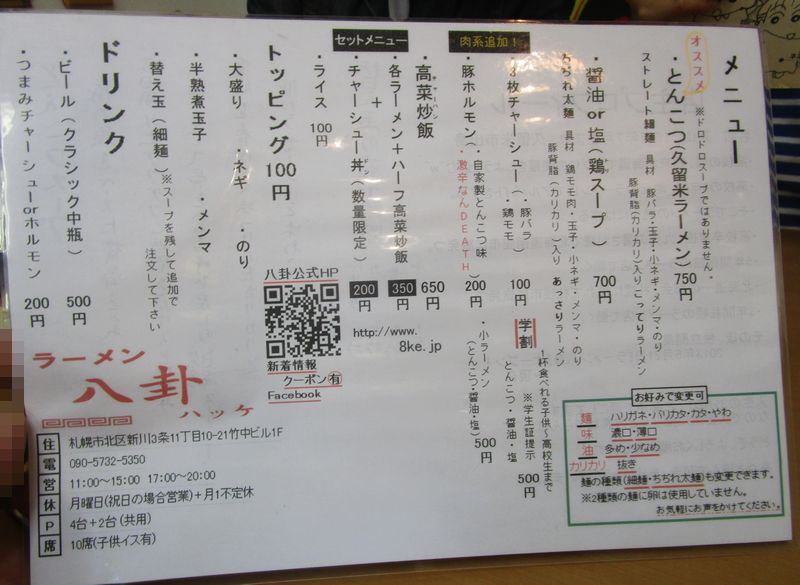 メニュー
オススメ
※ドロドロスープではありません。
・とんこつ(久留米ラーメン) 750円
ストレート細麺 具材 豚バラ・玉子・小ネギ・メンマ・のり
豚背脂(カリカリ)入り こってりラーメン
・醤油or塩(鶏スープ) 700円
ちぢれ太麺 具材 鶏モモ肉・玉子・小ネギ・メンマ・のり
豚背脂(カリカリ)入り あっさりラーメン
肉系追加!
・3枚チャーシュー(・豚バラ ・鶏モモ 100円
・豚ホルモン(・自家製とんこつ味 ・激辛なんDEATH) 200円
学割
1杯食べれる子供~高校生まで
※学生証提示
とんこつ・醤油・塩 500円
・小ラーメン
(とんこつ・醤油・塩) 500円
・高菜炒飯 650円
セットメニュー
・各ラーメン+ハーフ高菜炒飯 350円
+
・チャーシュー丼(数量限定) 200円
・ライス 100円
トッピング 100円
・大盛り ・ネギ ・のり
・半熟煮玉子 ・メンマ
・替え玉(細麺) ※スープを残して追加で
注文して下さい
ドリンク
・ビール(クラシック中瓶) 500円
・つまみチャーシューorホルモン 200円
八卦公式HP
http://www.
8ke.jp
新着情報
クーポン有
Facebook
ラーメン
八卦
ハッケ
住 札幌市北区新川3条11丁目10-21竹中ビル1F
電 090-5732-5350
営 11:00~15:00 17:00~20:00
休 月曜日(祝日の場合営業)+月1不定休
P 4台+2台(共用)
席 10席(子供イス有)
お好みで変更可
麺 ハリガネ・バリカタ・カタ・やわ
味 濃口・薄口
油 多め・少なめ
カリカリ 抜き
麺の種類(細麺・ちぢれ太麺)も変更できます。
※2種類の麺に卵は使用していません。
お気軽にお声をかけてください。